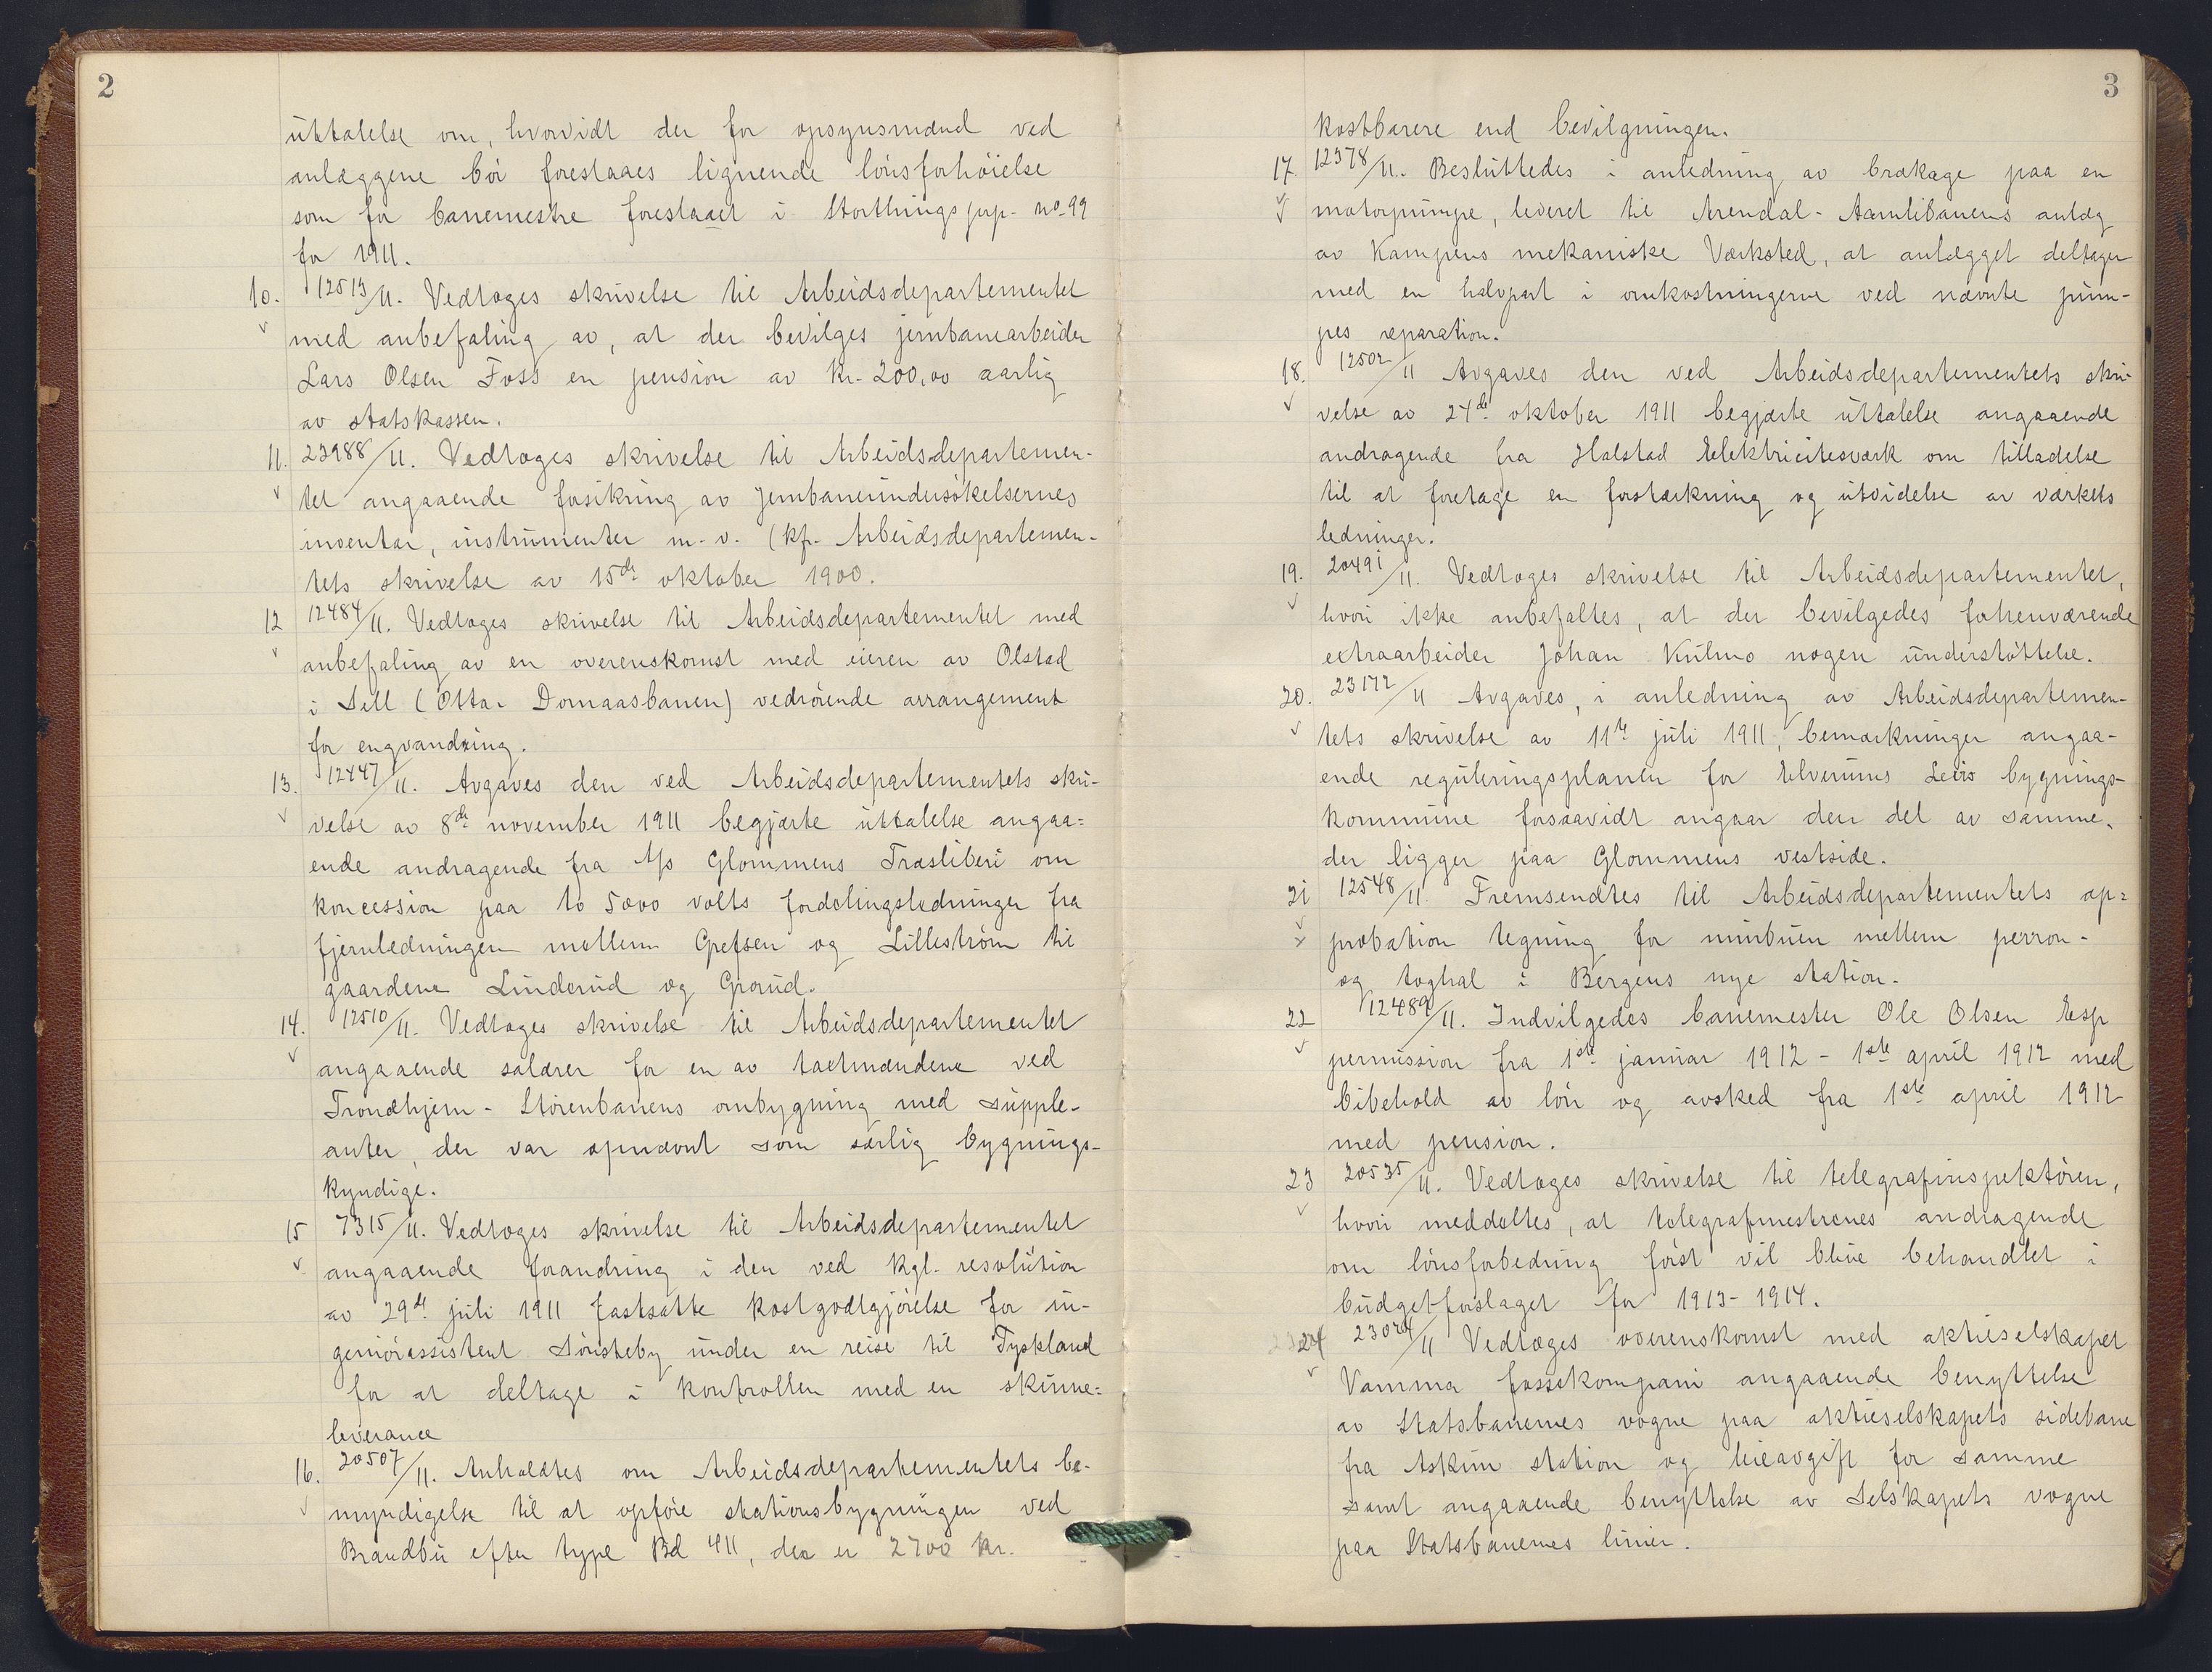 2
uttalelse om, hvorvidt der for opsynsmænd ved
anlæggene bør foreslaaes lignende lønsforhøielse
som for banemestre foreslaaet i Storthings prp. no. 99
for 1911.
10. 12513/11. Vedtoges skrivelse til Arbeidsdepartementet
med anbefaling av, at der bevilges jernbanearbeider
Lars Olsen Foss en pension av Kr. 200,00 aarlig
av statskassen.
11. 23988/11. Vedtoges skrivelse til Arbeidsdepartemen-
tet angaaende forsikring av Jernbaneundersøkelsernes
inventar, instrumenter m. v. (kfr. Arbeidsdepartemen-
tets skrivelse av 15de oktober 1900.
12 12484/11. Vedtoges skrivelse til Arbeidsdepartementet med
anbefaling av en overenskomst med eieren av Olstad
i Sell (Otta- Domaasbanen) vedrørende arrangement
for engvandring.
13. 12447/11. Avgaves den ved Arbeidsdepartementets skri-
velse av 8de november 1911 begjærte uttalelse angaa=
ende andragende fra A/s Glommens Træsliberi om
koncession paa to 5000 volts fordelingsledninger fra
fjernledningen mellem Grefsen og Lillestrøm til
gaardene Linderud og Grorud.
14. 12510/11. Vedtoges skrivelse til Arbeidsdepartementet
angaaende salærer for en av taxtmændene ved
Trondhjem - Størenbanens ombygning med supple-
anter, der var opnævnt som særlig bygnings-
kyndige.
15 7315/11. Vedtoges skrivelse til Arbeidsdepartementet
angaaende forandring i den ved kgl. resolution
av 29de juli 1911 fastsatte kostgodtgjørelse for in-
geniørassistent Sørsteby under en reise til Tyskland
for at deltage i kontrollen med en skinne=
leverance
16. 20507/11. Anholdtes om Arbeidsdepartementets be-
myndigelse til at opføre stationsbygningen ved
Brandbu efter type Bd 411, der er 2700 kr.
3
kostbarere end bevilgningen.
17. 12378/11. Besluttedes i anledning av brækage paa en
motorpumpe, leveret til Arendal - Aamlibanens anlæg
av Kampens mekaniske Værksted, at anlægget deltager
med en halvpart i omkostningerne ved nævnte pum-
pes reparation.
18. 12502/11 Avgaves den ved Arbeidsdepartementets skri-
velse av 24de oktober 1911 begjærte uttalelse angaaende
andragende fra Hafslund Elektricitesværk om tilladelse
til at foretage en forstærkning og utvidelse av værkets
ledninger.
19. 20491/11. Vedtoges skrivelse til Arbeidsdepartementet,
hvori ikke anbefaltes, at der bevilgedes forhenværende
extraarbeider Johan Kulmo nogen understøttelse.
20. 23172/11 Avgaves, i anledning av Arbeidsdepartemen-
tets skrivelse av 11te juli 1911, bemærkninger angaa-
ende reguleringsplanen for Elverums Leirs bygnings-
kommune forsaavidt angaar den del av samme,
der ligger paa Glommens vestside.
21 12548/11. Fremsendtes til Arbeidsdepartementets ap=
probation tegning for murbuen mellem perron-
og toghal i Bergens nye station.
22 12489/11. Indvilgedes banemester Ole Olsen Esp
permission fra 1ste januar 1912 - 1ste april 1912 med
bibehold av løn og avsked fra 1ste april 1912
med pension.
23 20535/11. Vedtoges skrivelse til telegrafinspektøren,
hvori meddeltes, at telegrafmestrenes andragende
om lønsforbedring først vil blive behandlet i
budgetforslaget for 1913-1914.
24 23024/11 Vedtoges overenskomst med aktieselskapet
Vamma fossekompani angaaende benyttelse
av Statsbanernes vogne paa aktieselskapets sidebane
fra Askim station og leieavgift for samme
samt angaaende benyttelse av Selskapets vogne
paa Statsbanernes linier.